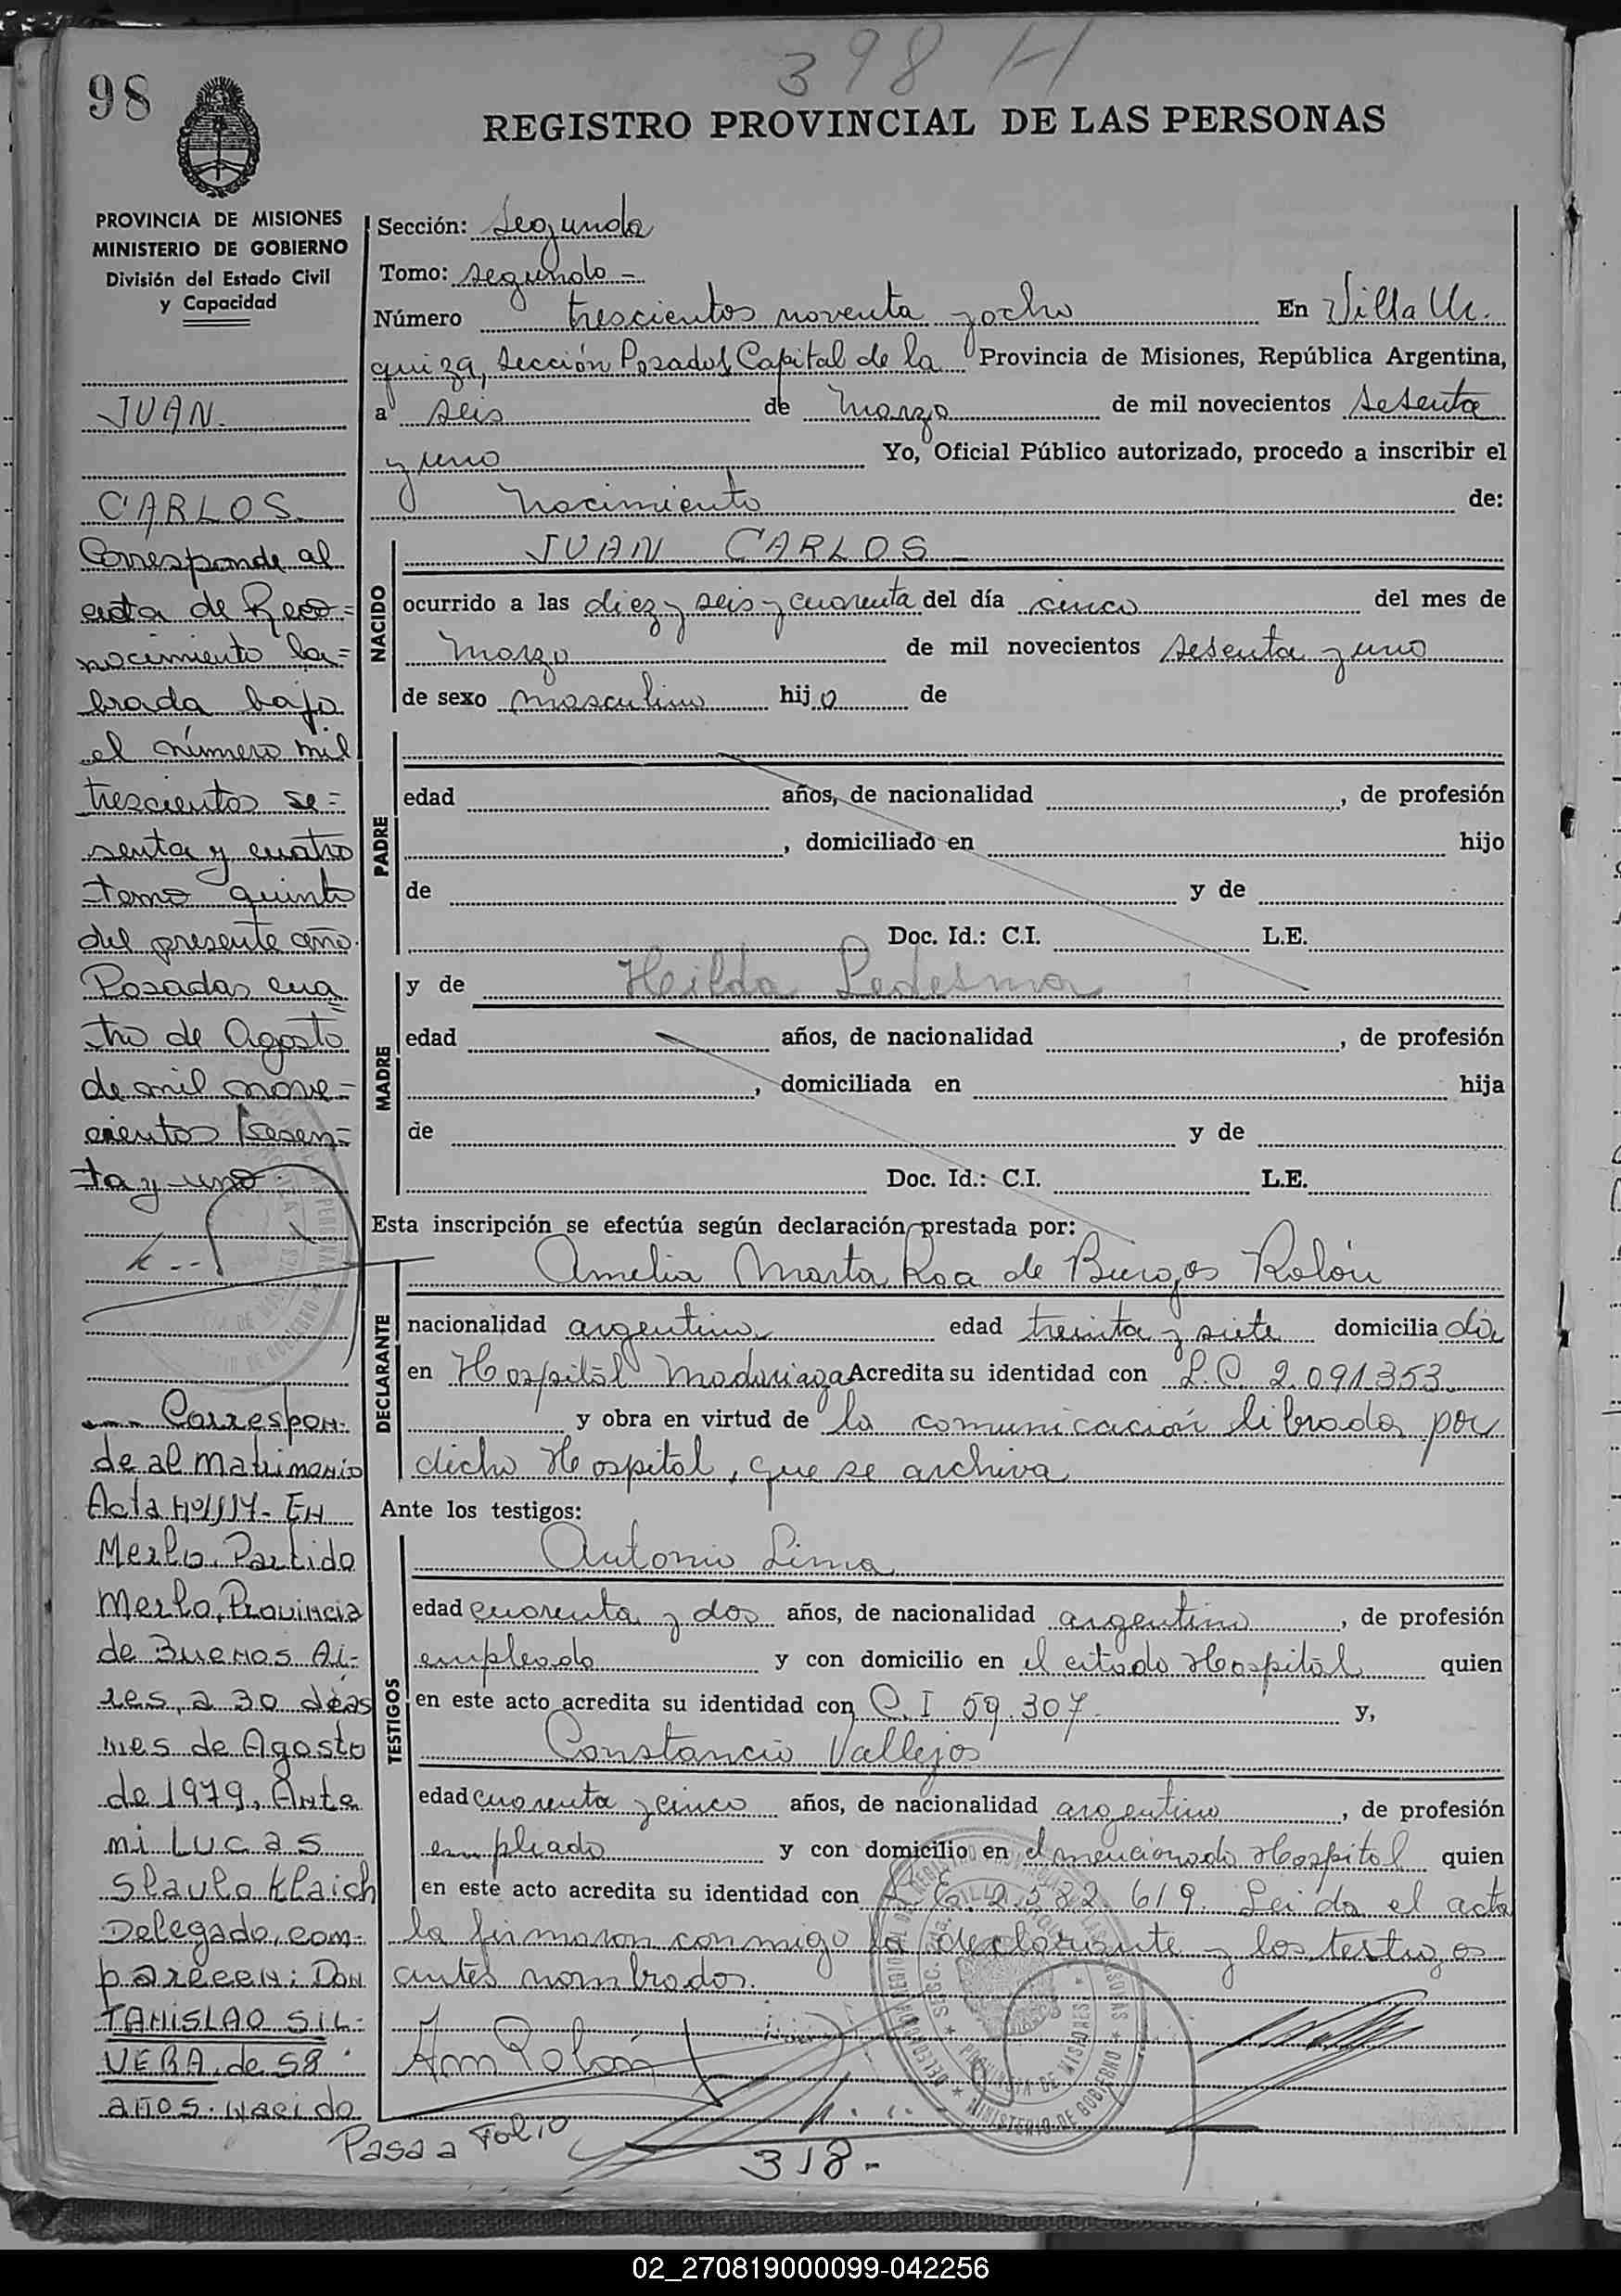 398 H
98
REGISTRO PROVINCIAL DE LAS PERSONAS
PROVINCIA DE MISIONES
MINISTERIO DE GOBIERNO
División del Estado Civil
y Capacidad
JUAN.
CARLOS
Corresponde al
acta de Reco=
nocimiento la=
brada bajo
el número mil
trescientos se=
senta y cuatro
tomo quinto
del presente año.
Posadas cua
tro de Agosto
de mil nove=
cientos sesen=
ta y uno.
Correspon-
de al matrimonio
Acta
EN
Merlo, Partido
Merlo, Provincia
de Buenos Ai-
res, a 30 días
mes de Agosto
de 1979, Ante
mi Lucas
Slavko Klaich
Delegado, com-
parecen: Don
TANISLAO SIL-
VERA, de 58
años. nacido
Pasa a Folio
318-
Sección: Segunda
Tomo: segundo =
Número trescientos noventa y ocho En Villa Ur.
quiza, Sección Posadas Capital de la Provincia de Misiones, República Argentina,
a seis de Marzo de mil novecientos sesenta
y uno Yo, Oficial Público autorizado, procedo a inscribir el
Nacimiento de:
NACIDO
JUAN CARLOS
ocurrido a las diez y seis y cuarenta del día cinco del mes de
Marzo de mil novecientos sesenta y uno
de sexo masculino hijo de
PADRE
edad años, de nacionalidad , de profesión
, domiciliado en hijo
de y de
Doc. Id.: C.I. L.E.
MADRE
y de Heilda Ledesma
edad años, de nacionalidad , de profesión
, domiciliada en hija
de y de
Doc. Id.: C.I. L.E.
Esta inscripción se efectúa según declaración prestada por:
DECLARANTE
Amelia Marta Roa de Burgos Rolón
nacionalidad argentina edad treinta y siete domicilia da
en Hospital Madariaga Acredita su identidad con L.C. 2.091.353
y obra en virtud de la comunicación librada por
dicho Hospital, que se archiva
Ante los testigos:
TESTIGOS
Antonio Lima
edad cuarenta y dos años, de nacionalidad argentino , de profesión
empleado y con domicilio en el citado Hospital quien
en este acto acredita su identidad con C.I 59.307 y,
Constancio Vallejos
edad cuarenta y cinco años, de nacionalidad argentino , de profesión
empleado y con domicilio en el mencionado Hospital quien
en este acto acredita su identidad con L.E. 2.582.619. Leida el acta
la firmaron conmigo la declarante y los testigos
antes nombrados.
02_270819000099-042256